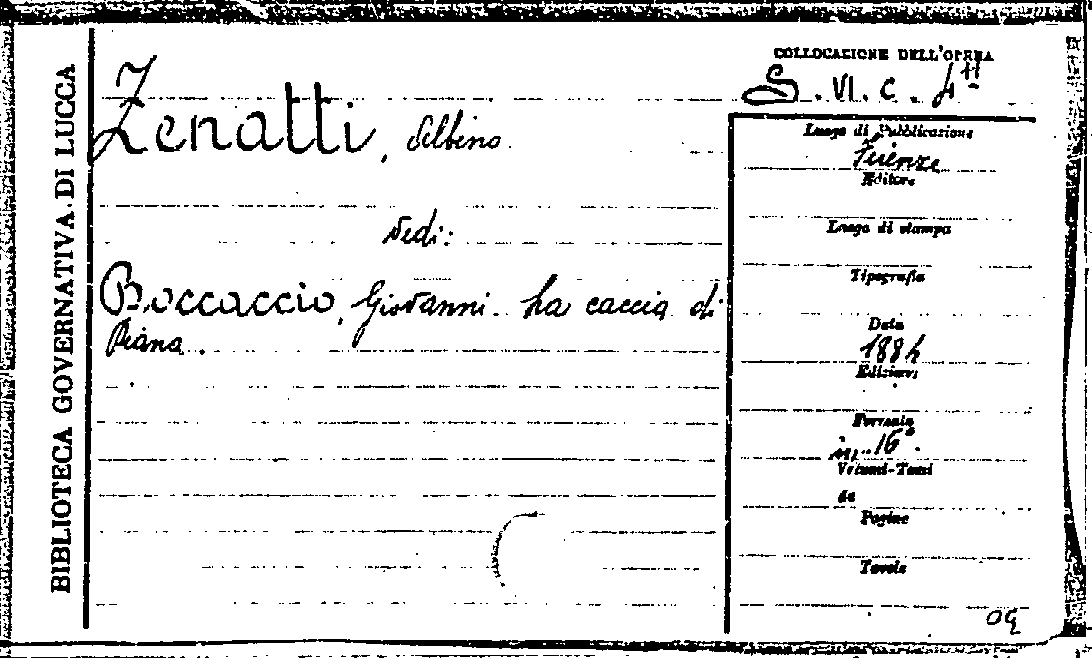 BIBLIOTECA GOVERNATIVA DI LUCCA
Zenatti, Albino
vedi:
Boccaccio, Giovanni. La caccia di
Diana.
COLLOCAZIONE DELL'OPERA
S. VI. C.
Luogo di Pubblicazione
Firenze
Editore
Luogo di stampa
Tipografia
Data
1884
Edizioni
Formato
in 16°.
Volumi-Tomi
da
Pagine
Tavole